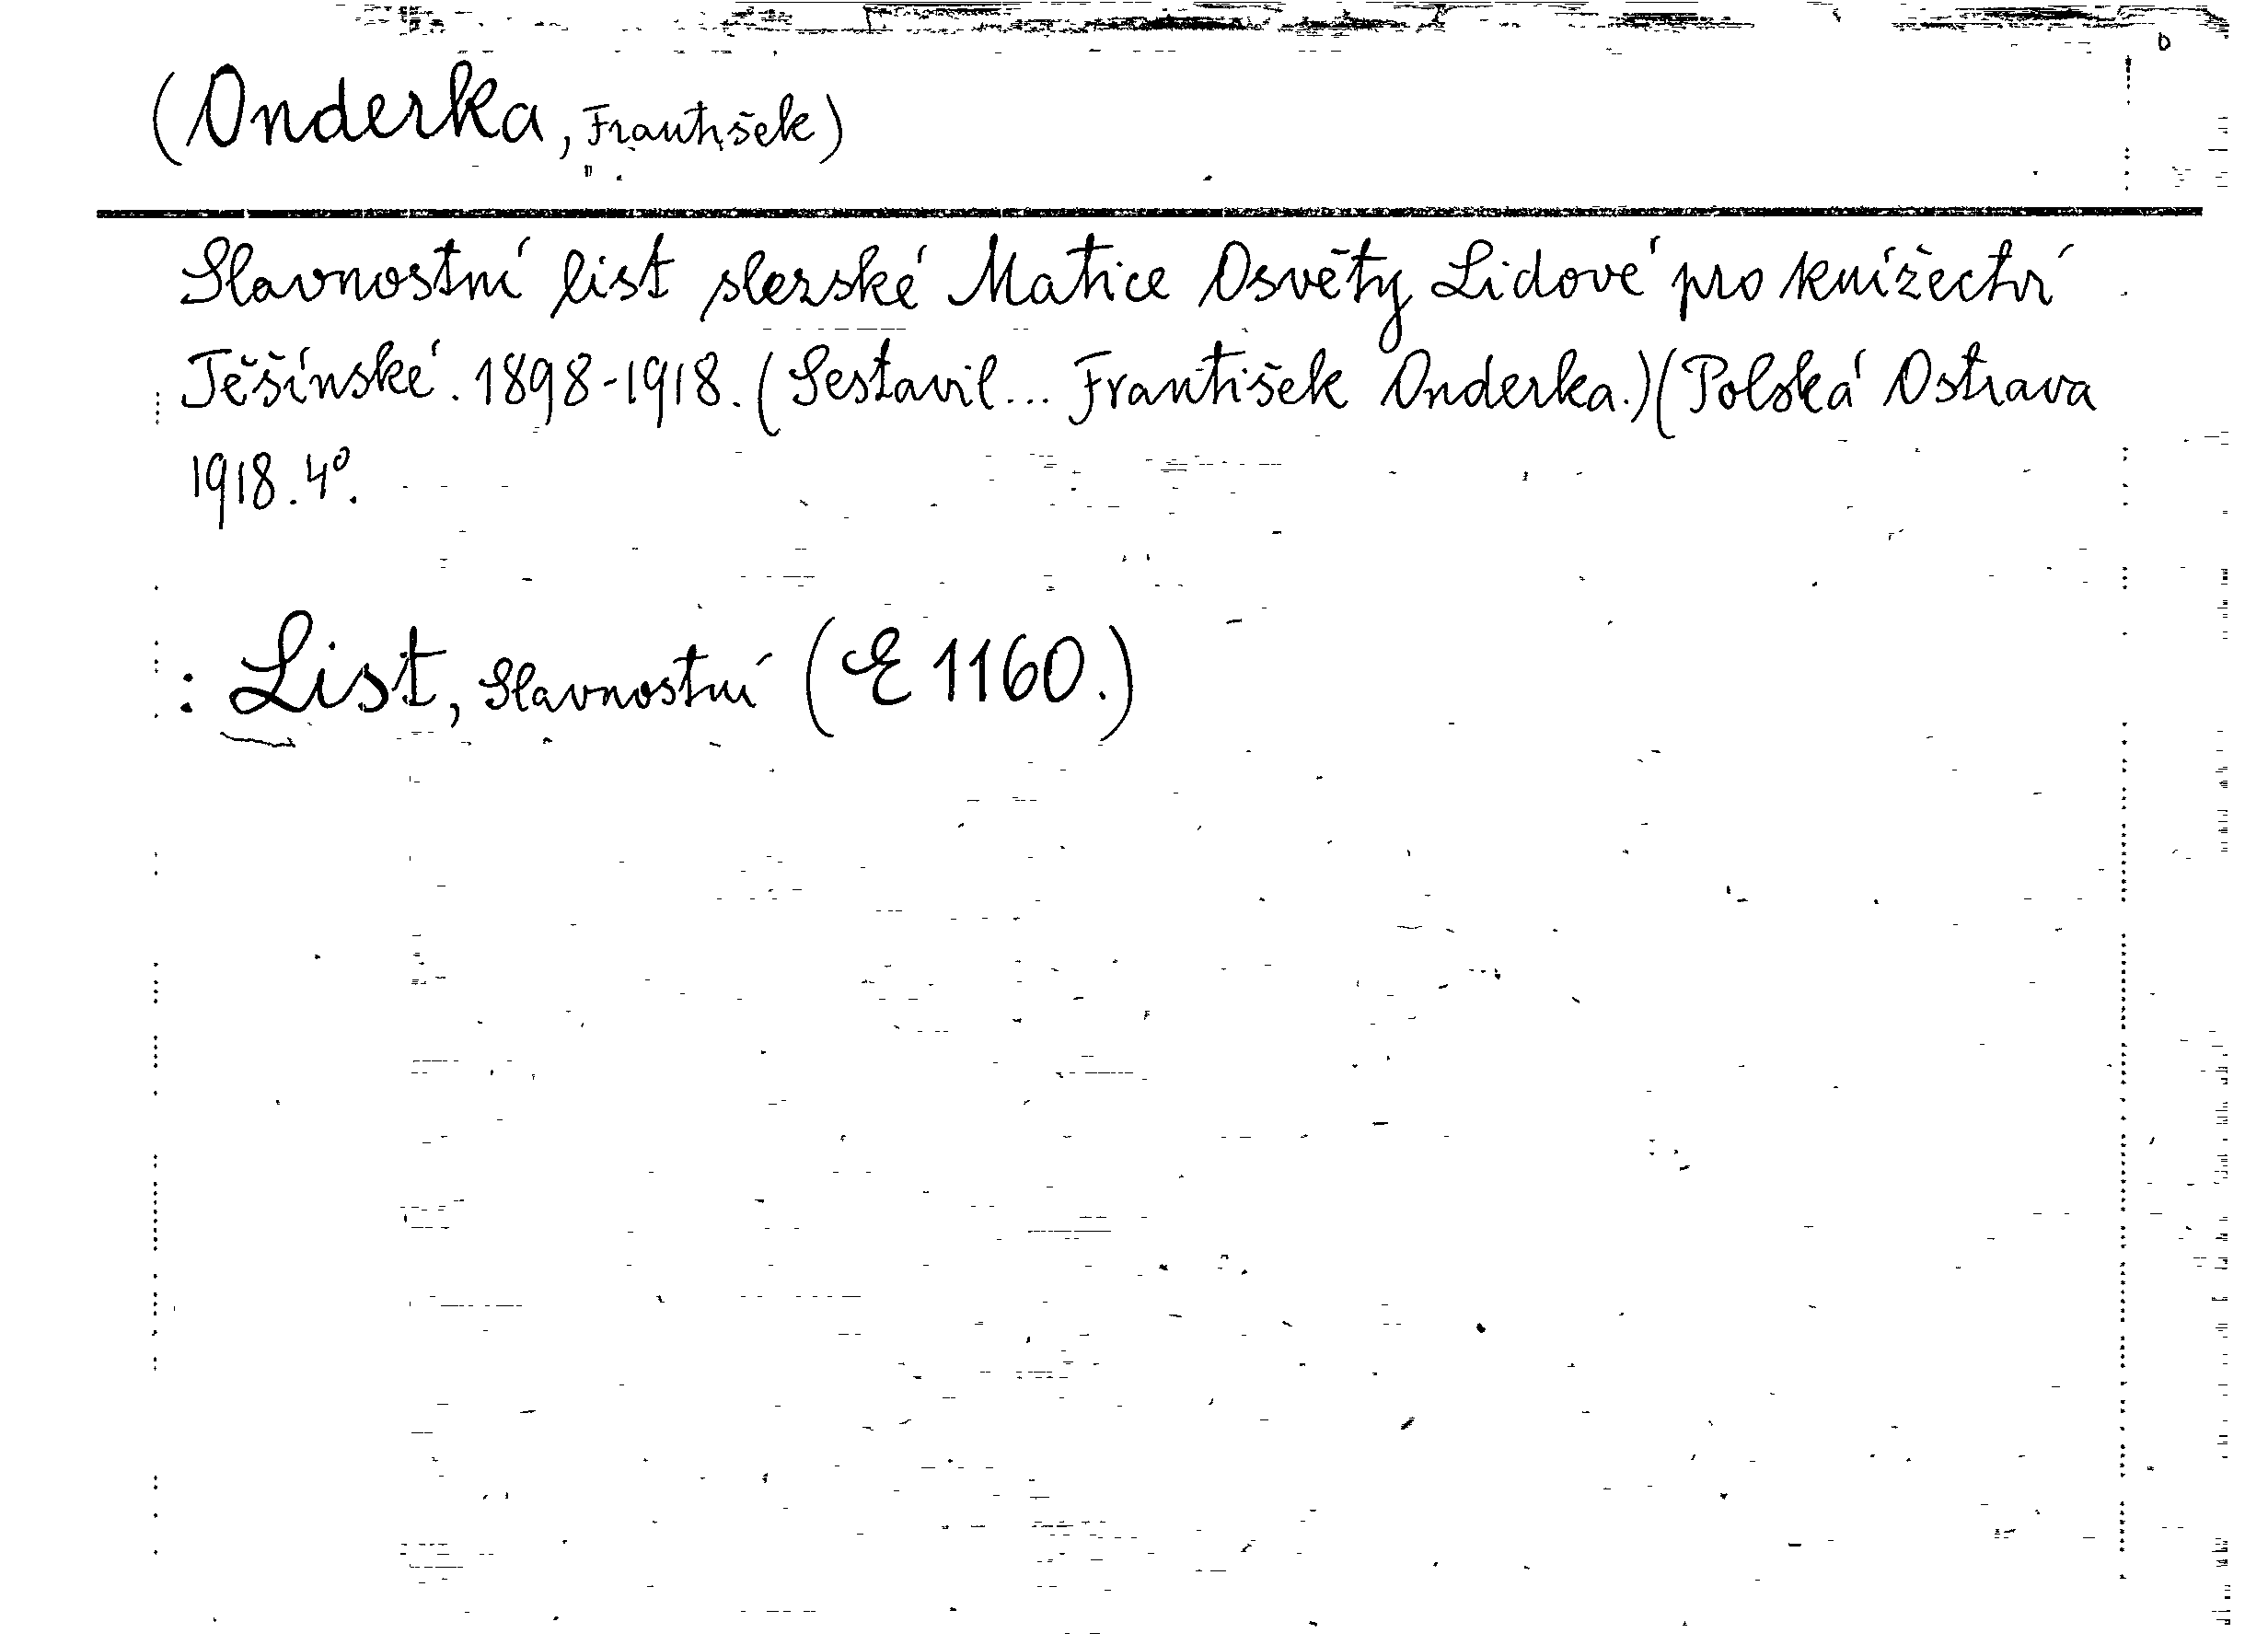 (Onderka, František)
Slavnostní list slezské Matice Osvěty Lidové pro knížectví
Těšínské. 1898-1918. (Sestavil... František Onderka.) (Polská Ostrava
1918. 4°.
: List, Slavnostní (E 1160.)